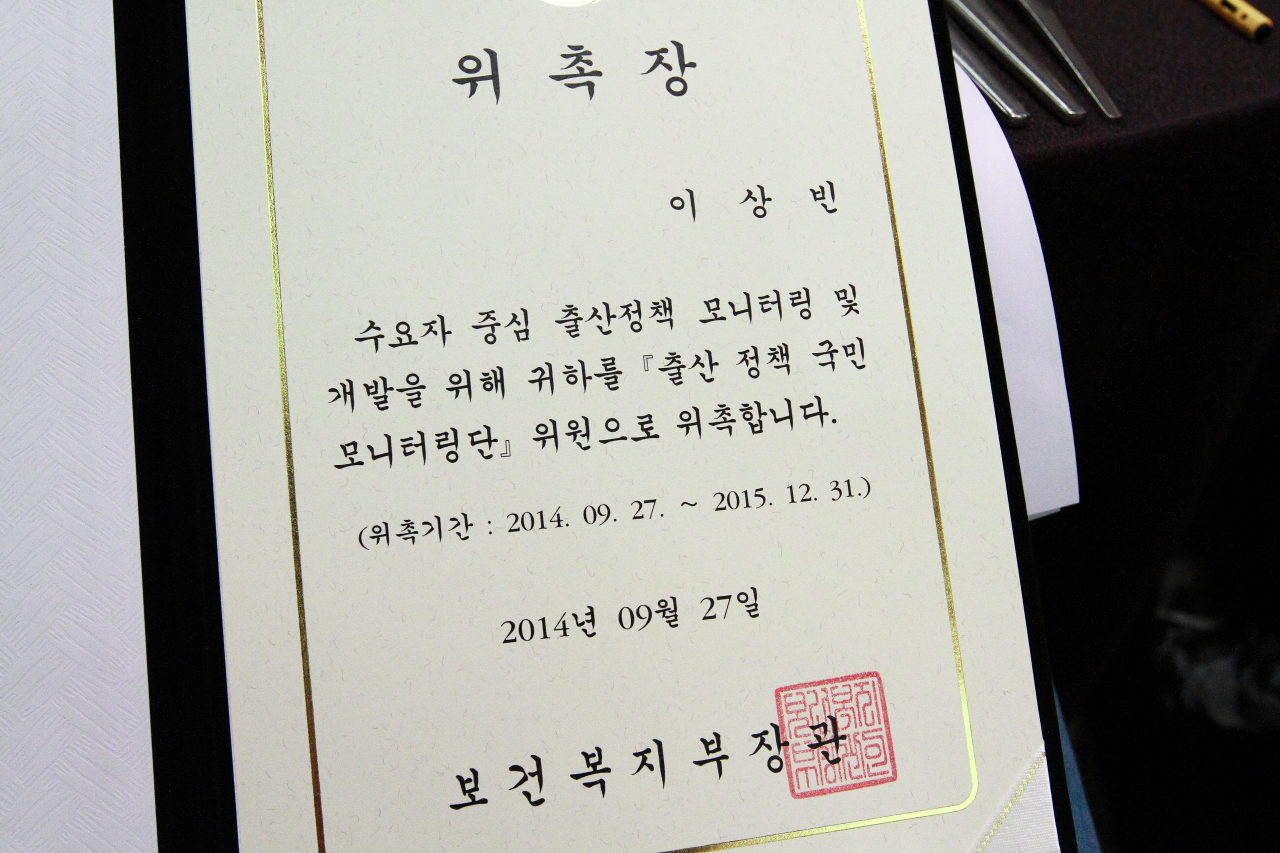 위 촉 장
이 상 빈
수요자 중심 출산정책 모니터링 및
개발을 위해 귀하를 『출산 정책 국민
모니터링단』 위원으로 위촉합니다.
(위촉기간 : 2014. 09. 27. ~ 2015. 12. 31.)
2014년 09월 27일
보 건 복 지 부 장 관